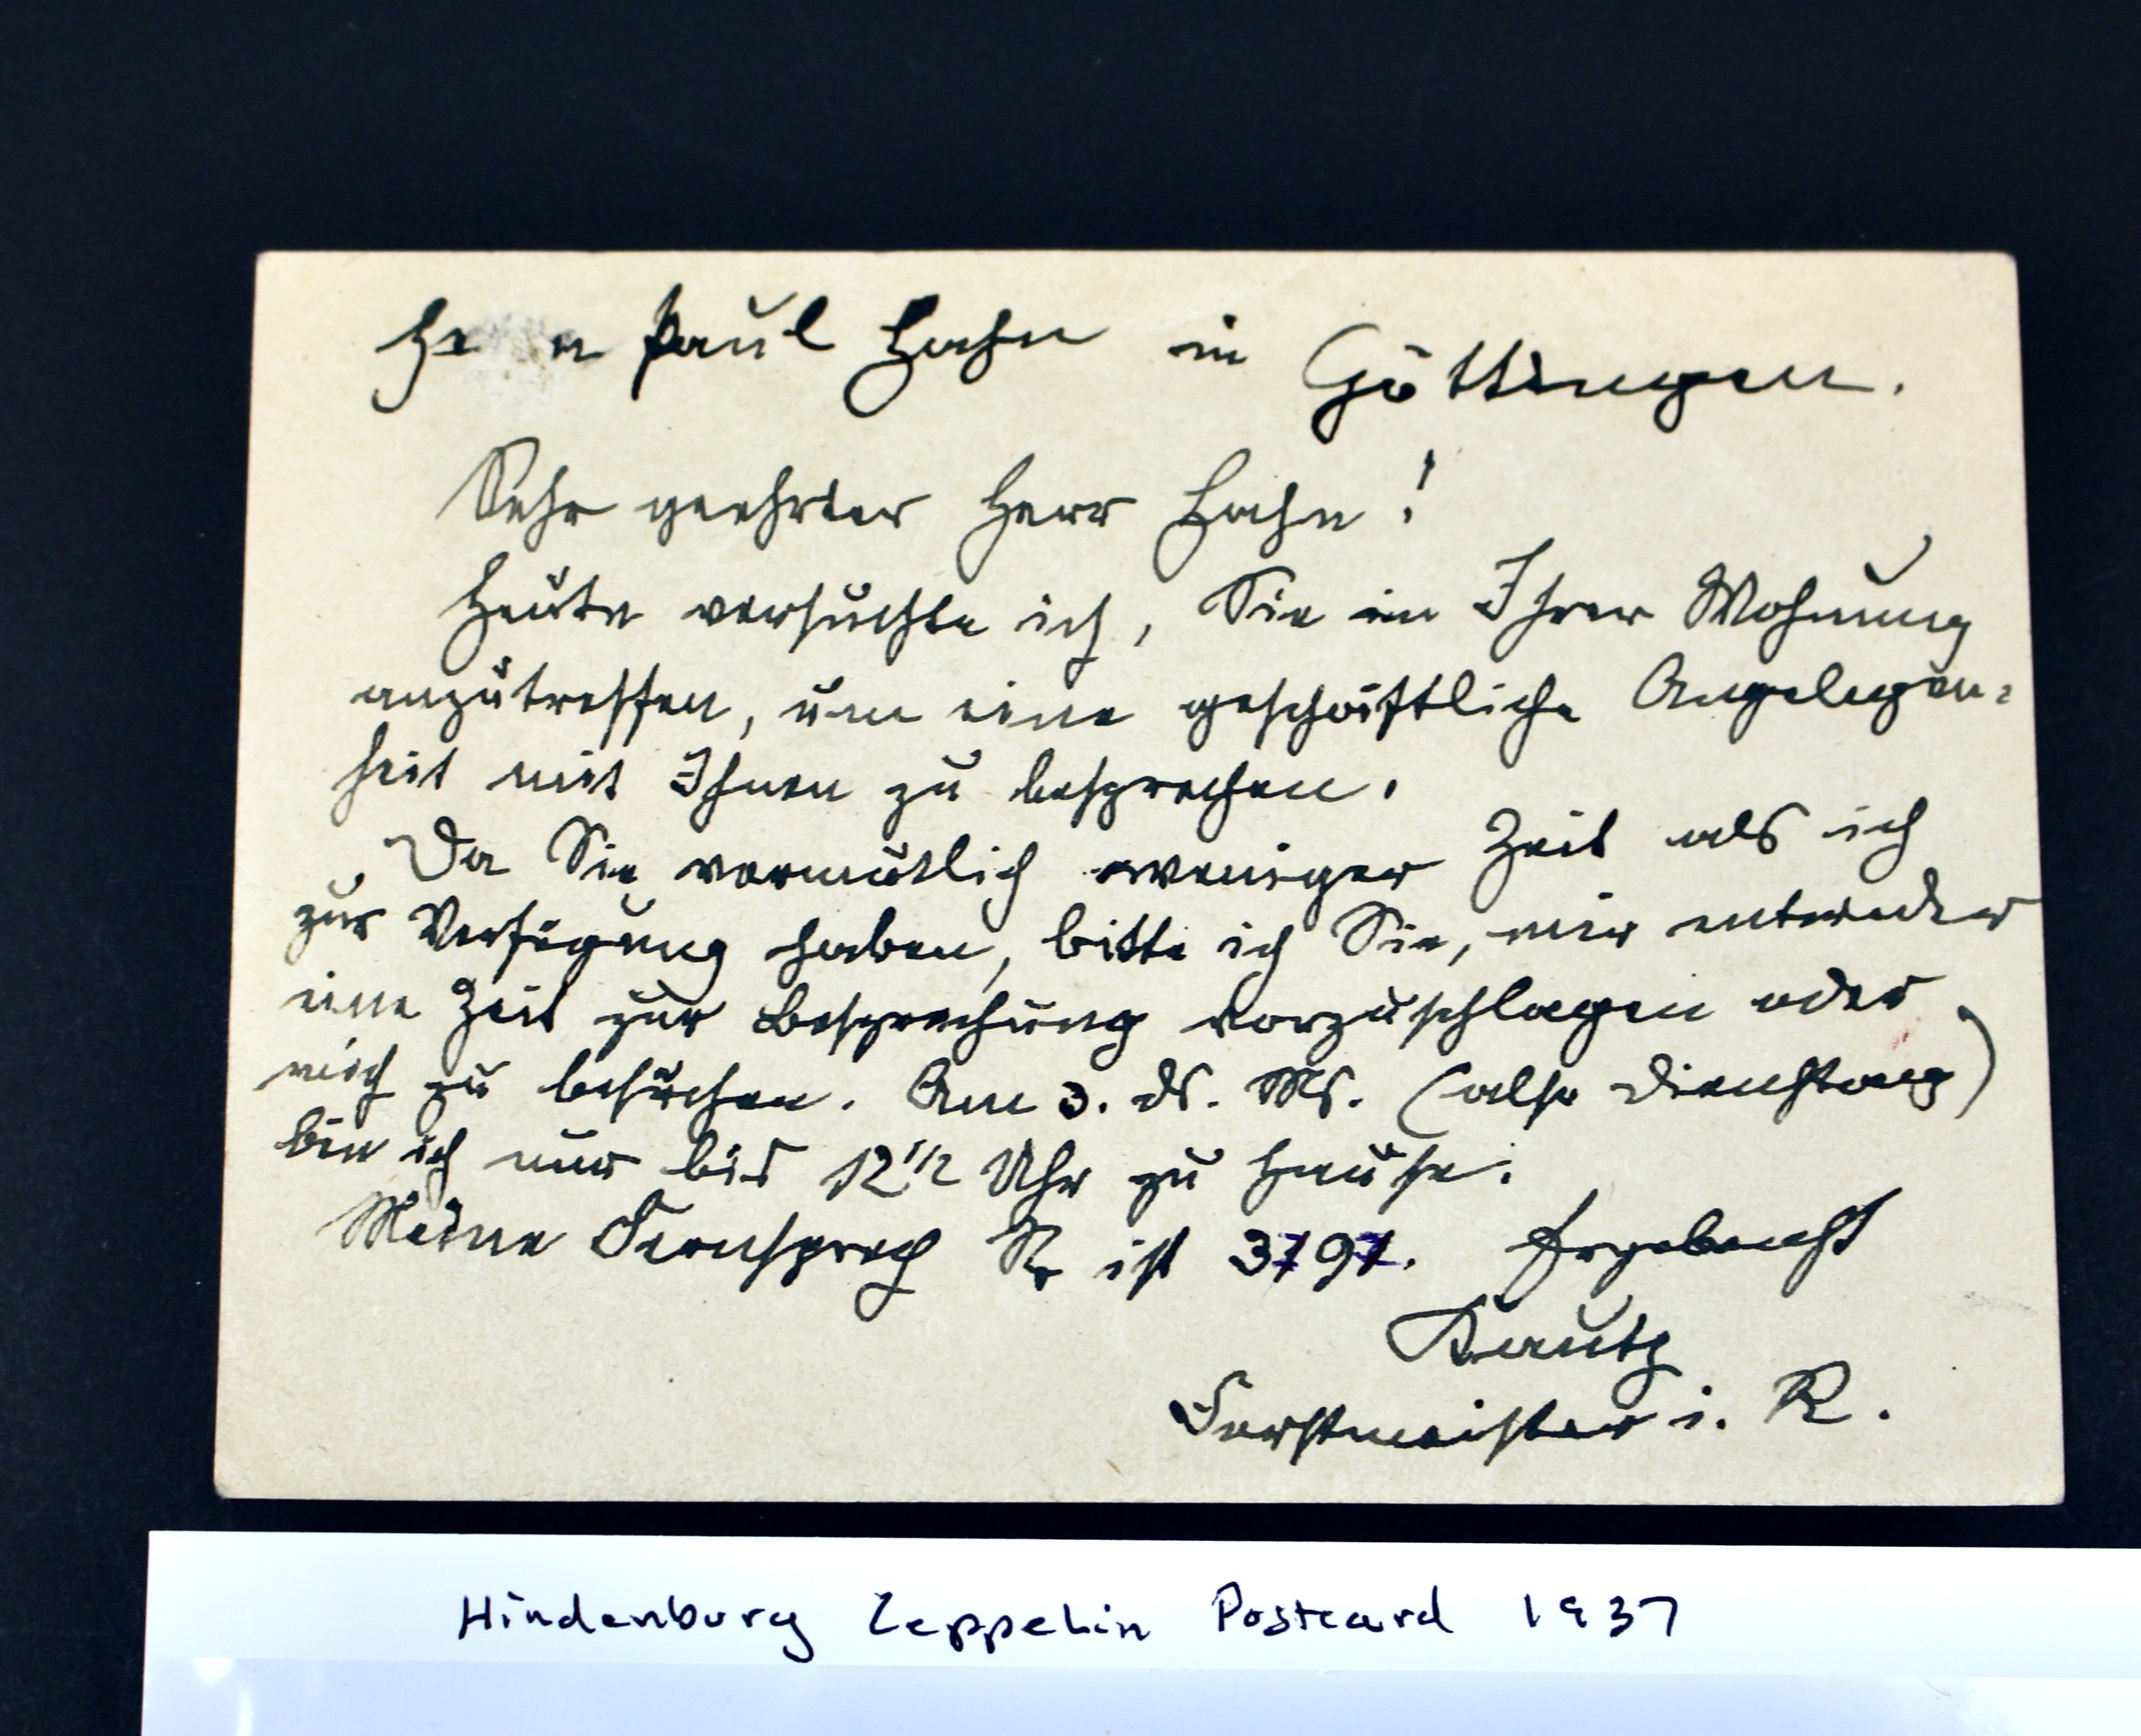 Herrn Paul Hahn in Göttingen.
Sehr geehrter Herr Hahn!
Heute versuchte ich, Sie in Ihrer Wohnung
anzutreffen, um eine geschäftliche Angelegen-
heit mit Ihnen zu besprechen.
Da Sie vermutlich weniger Zeit als ich
zur Verfügung haben, bitte ich Sie, mir entweder
eine Zeit zur Besprechung vorzuschlagen oder
mich zu besuchen. Am 3. ds. Ms. (also Dienstag)
bin ich nur bis 12 1/2 Uhr zu Hause.
Meine Fernsprech Nr ist 3797. Ergebenst
Kautz
Forstmeister i. R.
Hindenburg Zeppelin Postcard 1937